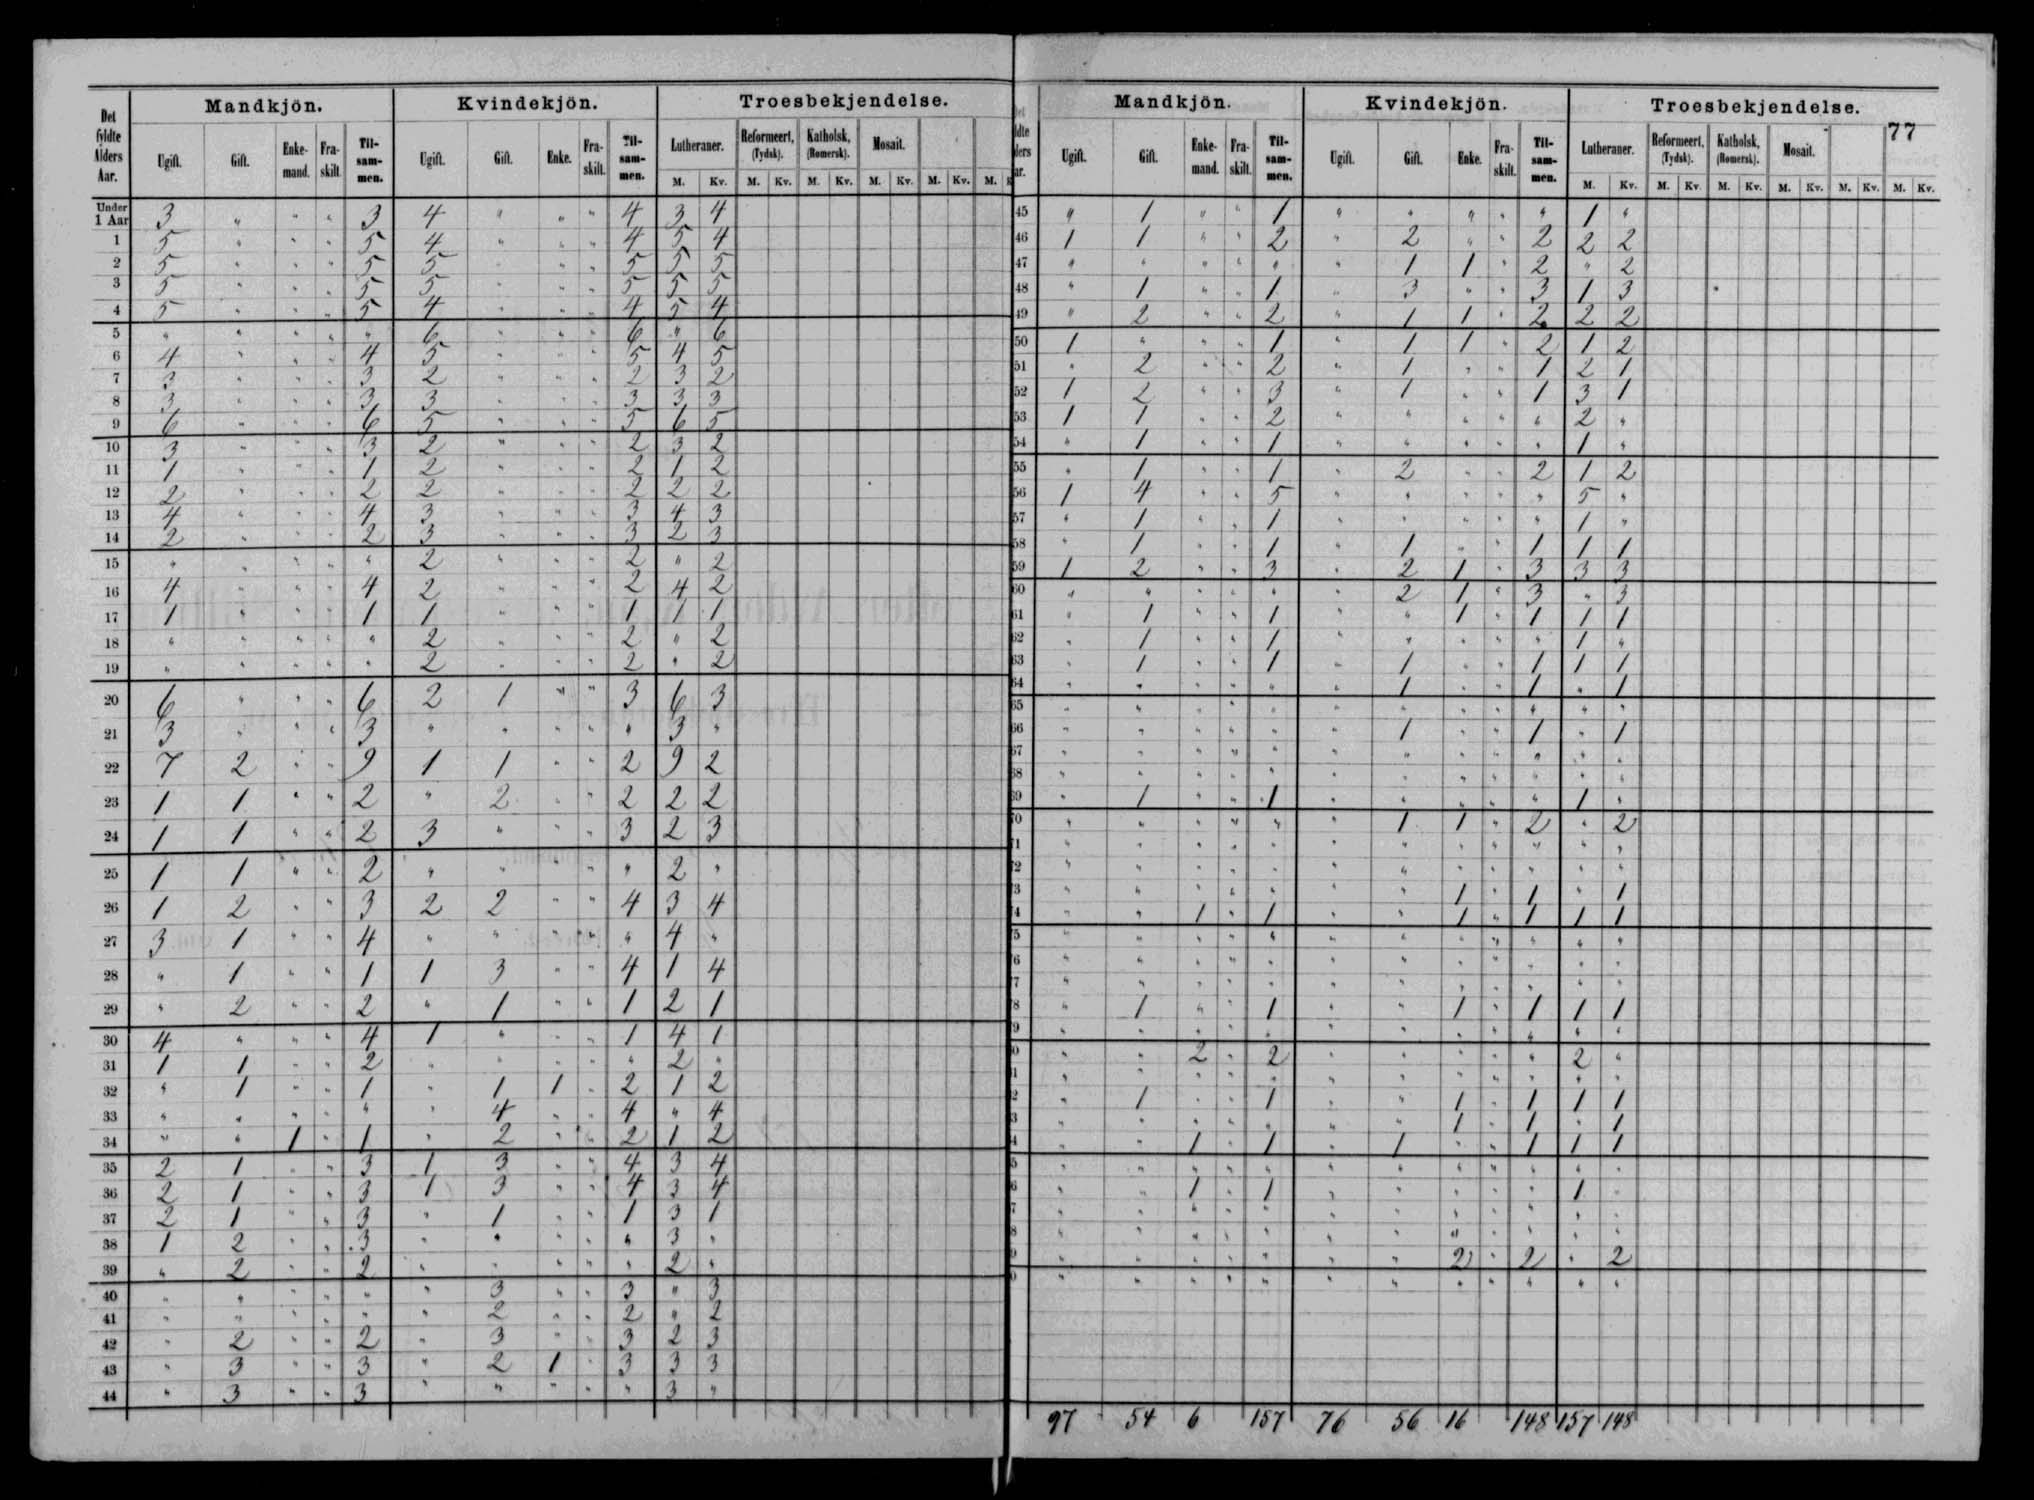 Det fyldte Alders Aar. | Mandkjön. | Kvindekjön. | Troesbekjendelse.
Ugift. | Gift. | Enkemand. | Fraskilt. | Tilsammen. | Ugift. | Gift. | Enke. | Fraskilt. | Tilsammen. | Lutheraner. | Reformeert, (Tydsk). | Katholsk, (Romersk). | Mosait.
M. Kv. M. Kv. M. Kv. M. Kv. M. Kv. M.
Under 1 Aar 3 " " " 3 4 " " " 4 3 4
1 5 " " " 5 4 " " " 4 5 4
2 5 " " " 5 5 " " " 5 5 5
3 5 " " " 5 5 " " " 5 5 5
4 5 " " " 5 4 " " " 4 5 4
5 " " " " " 6 " " " 6 " 6
6 4 " " " 4 5 " " " 5 4 5
7 3 " " " 3 2 " " " 2 3 2
8 3 " " " 3 3 " " " 3 3 3
9 6 " " " 6 5 " " " 5 6 5
10 3 " " " 3 2 " " " 2 3 2
11 1 " " " 1 2 " " " 2 1 2
12 2 " " " 2 2 " " " 2 2 2
13 4 " " " 4 3 " " " 3 4 3
14 2 " " " 2 3 " " " 3 2 3
15 " " " " " 2 " " " 2 " 2
16 4 " " " 4 2 " " " 2 4 2
17 1 " " " 1 1 " " " 1 1 1
18 " " " " " 2 " " " 2 " 2
19 " " " " " 2 " " " 2 " 2
20 6 " " " 6 2 1 " " 3 6 3
21 3 " " " 3 " " " " " 3 "
22 7 2 " " 9 1 1 " " 2 9 2
23 1 1 " " 2 " 2 " " 2 2 2
24 1 1 " " 2 3 " " " 3 2 3
25 1 1 " " 2 " " " " " 2 "
26 1 2 " " 3 2 2 " " 4 3 4
27 3 1 " " 4 " " " " " 4 "
28 " 1 " " 1 1 3 " " 4 1 4
29 " 2 " " 2 " 1 " " 1 2 1
30 4 " " " 4 1 " " " 1 4 1
31 1 1 " " 2 " " " " " 2 "
32 " 1 " " 1 " 1 1 " 2 1 2
33 " " " " " " 4 " " 4 " 4
34 " " 1 " 1 " 2 " " 2 1 2
35 2 1 " " 3 1 3 " " 4 3 4
36 2 1 " " 3 1 3 " " 4 3 4
37 2 1 " " 3 " 1 " " 1 3 1
38 1 2 " " 3 " " " " " 3 "
39 " 2 " " 2 " " " " " 2 "
40 " " " " " " 3 " " 3 " 3
41 " " " " " " 2 " " 2 " 2
42 " 2 " " 2 " 3 " " 3 2 3
43 " 3 " " 3 " 2 1 " 3 3 3
44 " 3 " " 3 " " " " " 3 "
77
Mandkjön. | Kvindekjön. | Troesbekjendelse.
Ugift. | Gift. | Enkemand. | Fraskilt. | Tilsammen. | Ugift. | Gift. | Enke. | Fraskilt. | Tilsammen. | Lutheraner. | Reformeert, (Tydsk). | Katholsk, (Romersk). | Mosait.
M. Kv. M. Kv. M. Kv. M. Kv. M. Kv. M. Kv.
45 " 1 " " 1 " " " " " 1 "
46 1 1 " " 2 " 2 " " 2 2 2
47 " " " " " " 1 1 " 2 " 2
48 " 1 " " 1 " 3 " " 3 1 3
49 " 2 " " 2 " 1 1 " 2 2 2
50 1 " " " 1 " 1 1 " 2 1 2
51 " 2 " " 2 " 1 " " 1 2 1
52 1 2 " " 3 " 1 " " 1 3 1
53 1 1 " " 2 " " " " " 2 "
54 " 1 " " 1 " " " " " 1 "
55 " 1 " " 1 " 2 " " 2 1 2
56 1 4 " " 5 " " " " " 5 "
57 " 1 " " 1 " " " " " 1 "
58 " 1 " " 1 " 1 " " 1 1 1
59 1 2 " " 3 " 2 1 " 3 3 3
60 " " " " " " 2 1 " 3 " 3
61 " 1 " " 1 " " 1 " 1 1 1
62 " 1 " " 1 " " " " " 1 "
63 " 1 " " 1 " 1 " " 1 1 1
64 " " " " " " 1 " " 1 " 1
65 " " " " " " " " " " " "
66 " " " " " " 1 " " 1 " 1
67 " " " " " " " " " " " "
68 " " " " " " " " " " " "
69 " 1 " " 1 " " " " " 1 "
70 " " " " " " 1 1 " 2 " 2
71 " " " " " " " " " " " "
72 " " " " " " " " " " " "
73 " " " " " " " 1 " 1 " 1
74 " " 1 " 1 " " 1 " 1 1 1
5 " " " " " " " " " " " "
6 " " " " " " " " " " " "
7 " " " " " " " " " " " "
8 " 1 " " 1 " " 1 " 1 1 1
9 " " " " " " " " " " " "
0 " " 2 " 2 " " " " " 2 "
1 " " " " " " " " " " " "
2 " 1 " " 1 " " 1 " 1 1 1
3 " " " " " " " 1 " 1 " 1
4 " " 1 " 1 " 1 " " 1 1 1
5 " " " " " " " " " " " "
6 " " 1 " 1 " " " " " 1 "
7 " " " " " " " " " " " "
8 " " " " " " " " " " " "
9 " " " " " " " 2 " 2 " 2
0 " " " " " " " " " " " "
97 54 6 157 76 56 16 148 157 148